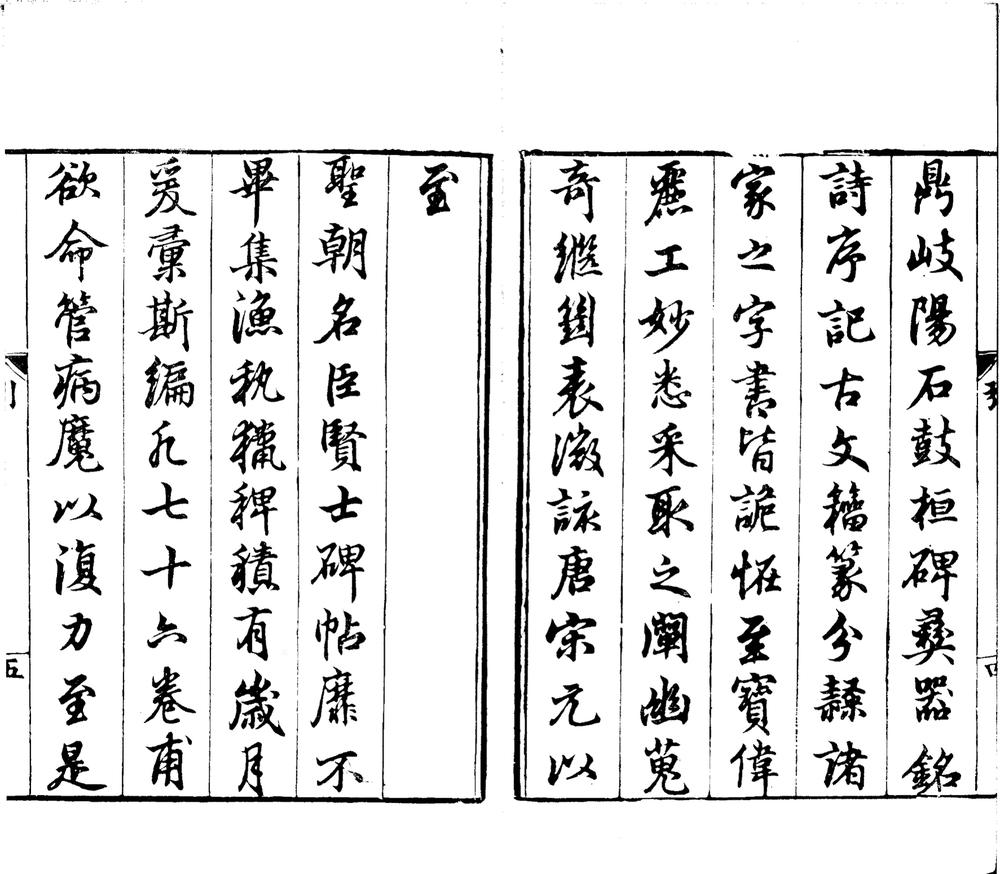 鼎岐陽石鼓桓碑彝器銘
詩序記古文籒篆分隸諸
家之字書皆詭怪至寶偉
麗工妙悉采取之闡幽蒐
奇繼圖表微詠唐宋元以
至
聖朝名臣賢士碑帖靡不
畢集漁秇獵稗積有歲月
爰彙斯編凡七十六卷甫
欲命管病魔以復力至是
五